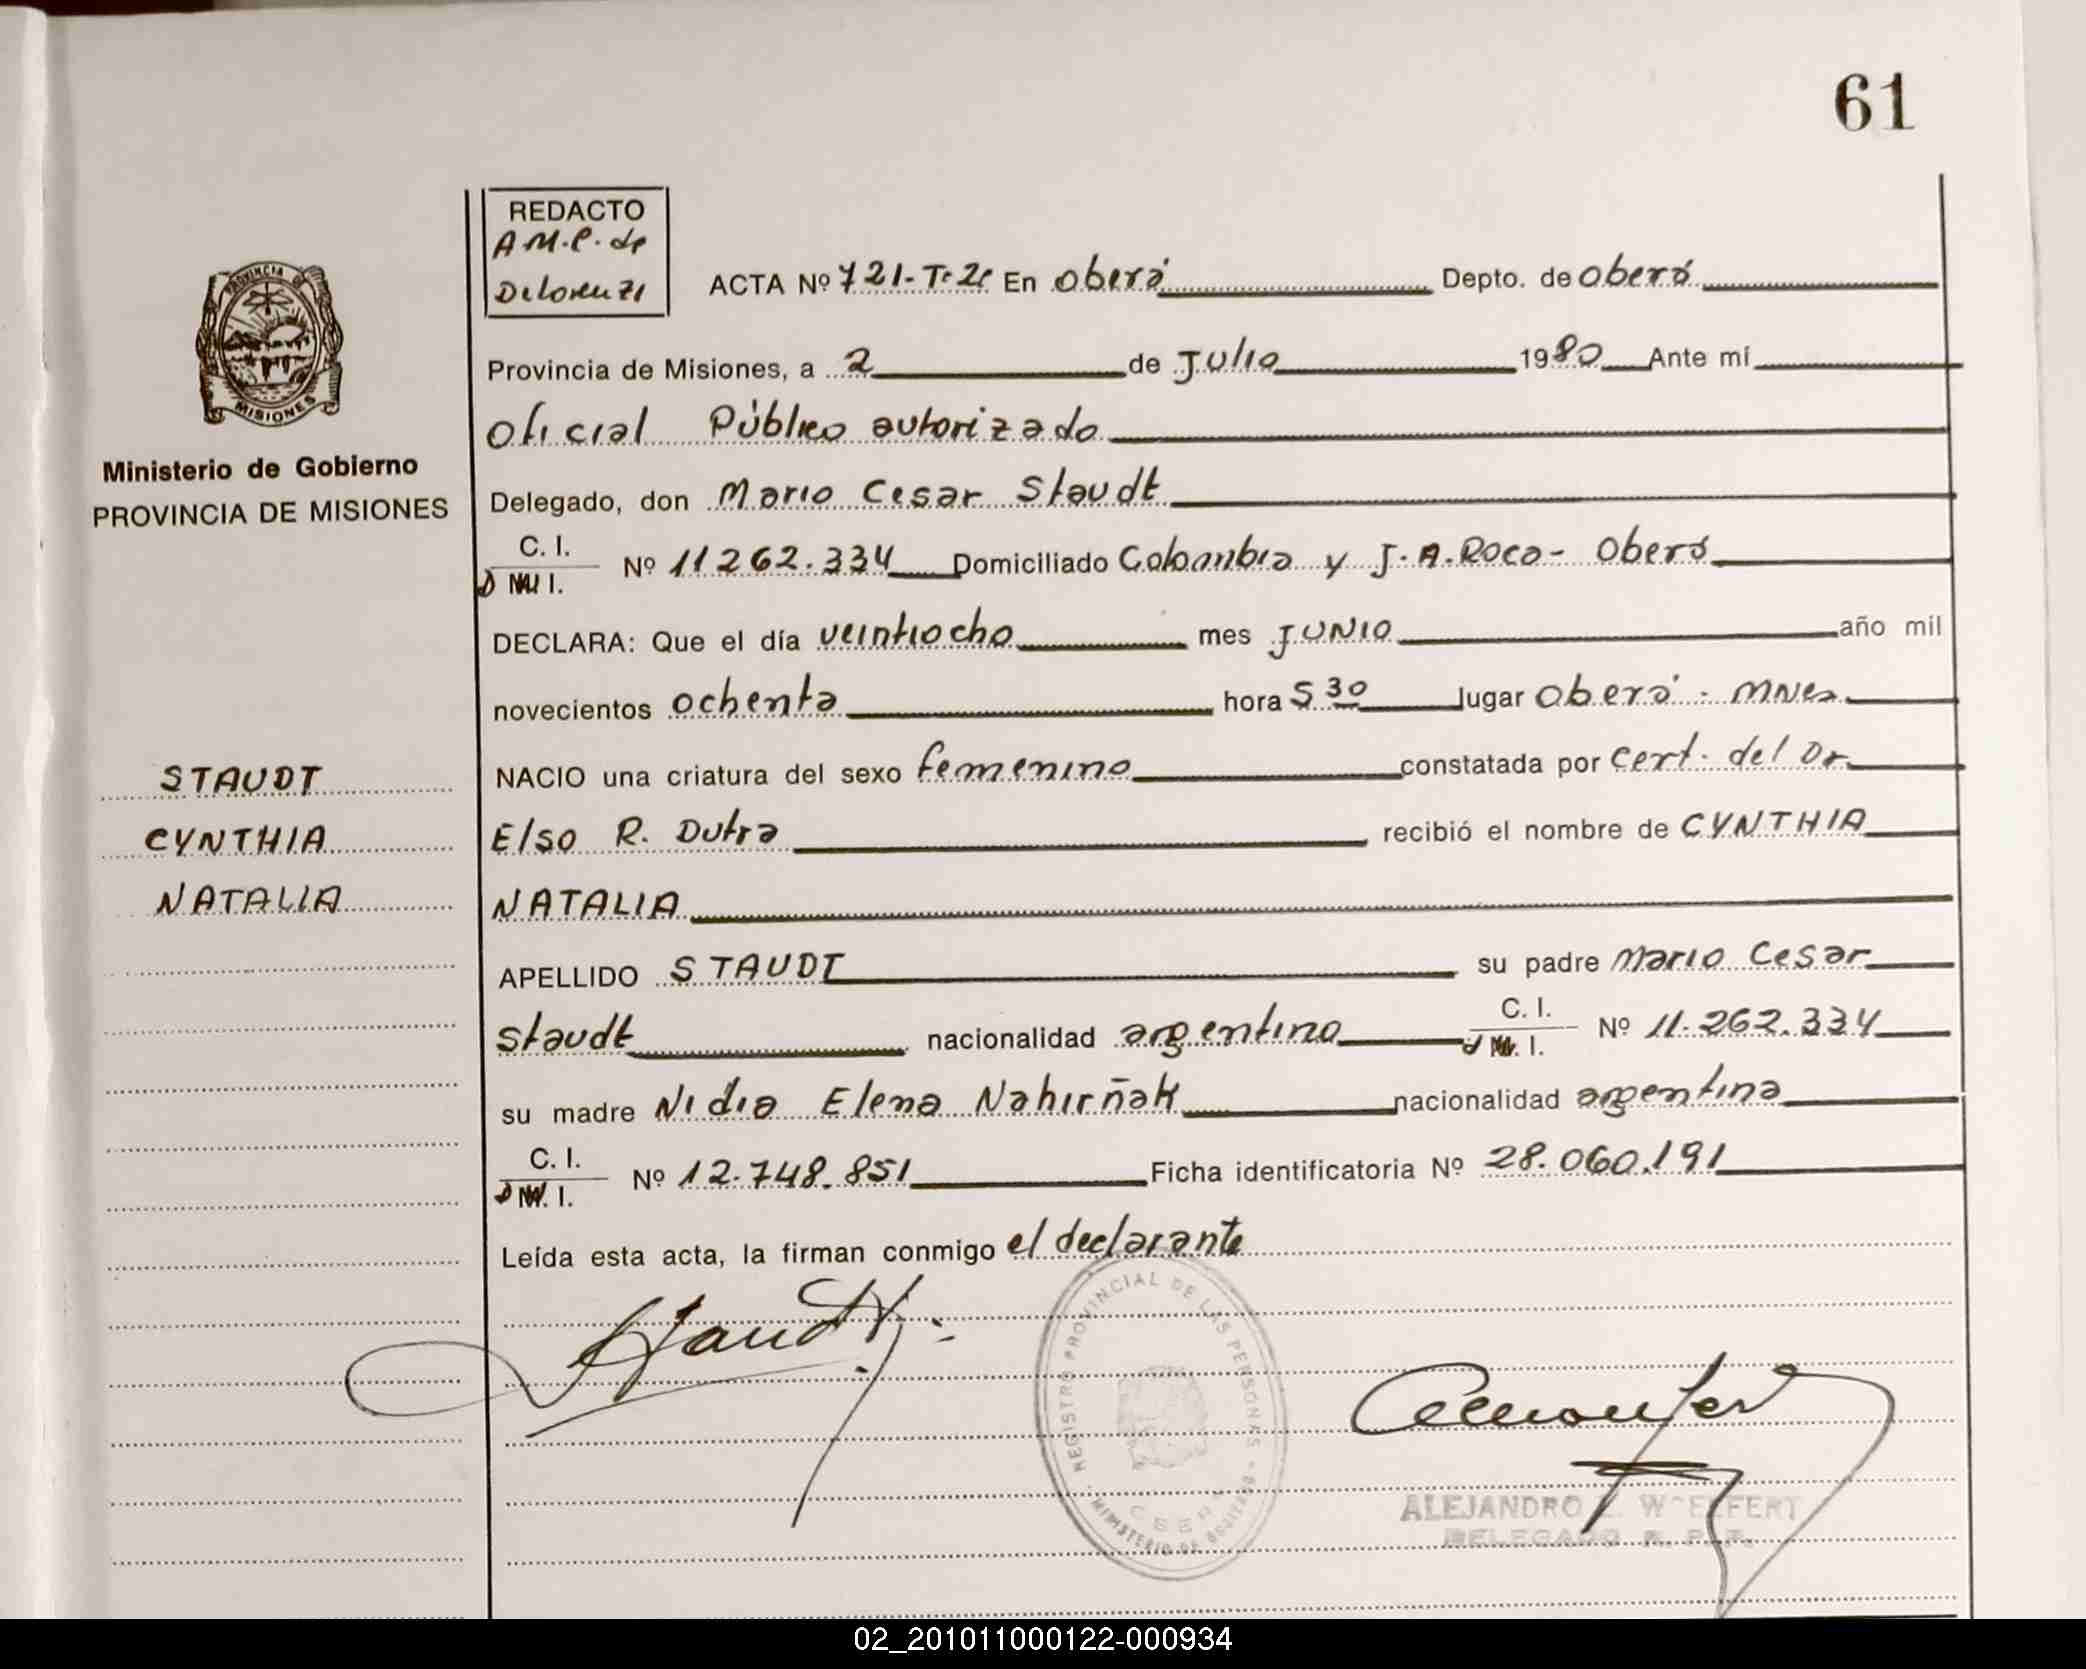 61
REDACTO
A.M.P. de
Delorenzi
ACTA Nº 721-Tº 2º En Oberá Depto. de Oberá
Provincia de Misiones, a 2 de Julio 1980 Ante mí
Oficial Público autorizado
Delegado, don Mario Cesar Staudt
C. I.
D N I. Nº 11262.334 Domiciliado Colombia y J.A. Roca - Oberá
DECLARA: Que el día veintiocho mes JUNIO año mil
novecientos ochenta hora 5 30 lugar Oberá - Mnes
NACIO una criatura del sexo femenino constatada por cert. del Dr
Elso R. Dutra recibió el nombre de CYNTHIA
NATALIA
APELLIDO STAUDT su padre Mario Cesar
Staudt nacionalidad argentino C. I. Nº 11.262.334
su madre Nidia Elena Nahirñak nacionalidad argentina
C. I.
Nº 12.748.851 Ficha identificatoria Nº 28.060.191
Leída esta acta, la firman conmigo el declarante
PROVINCIA DE
MISIONES
Ministerio de Gobierno
PROVINCIA DE MISIONES
STAUDT
CYNTHIA
NATALIA
Staudt
REGISTRO PROVINCIAL DE LAS PERSONAS
MINISTERIO DE
ALEJANDRO
DELEGADO R. P. P.
02_201011000122-000934